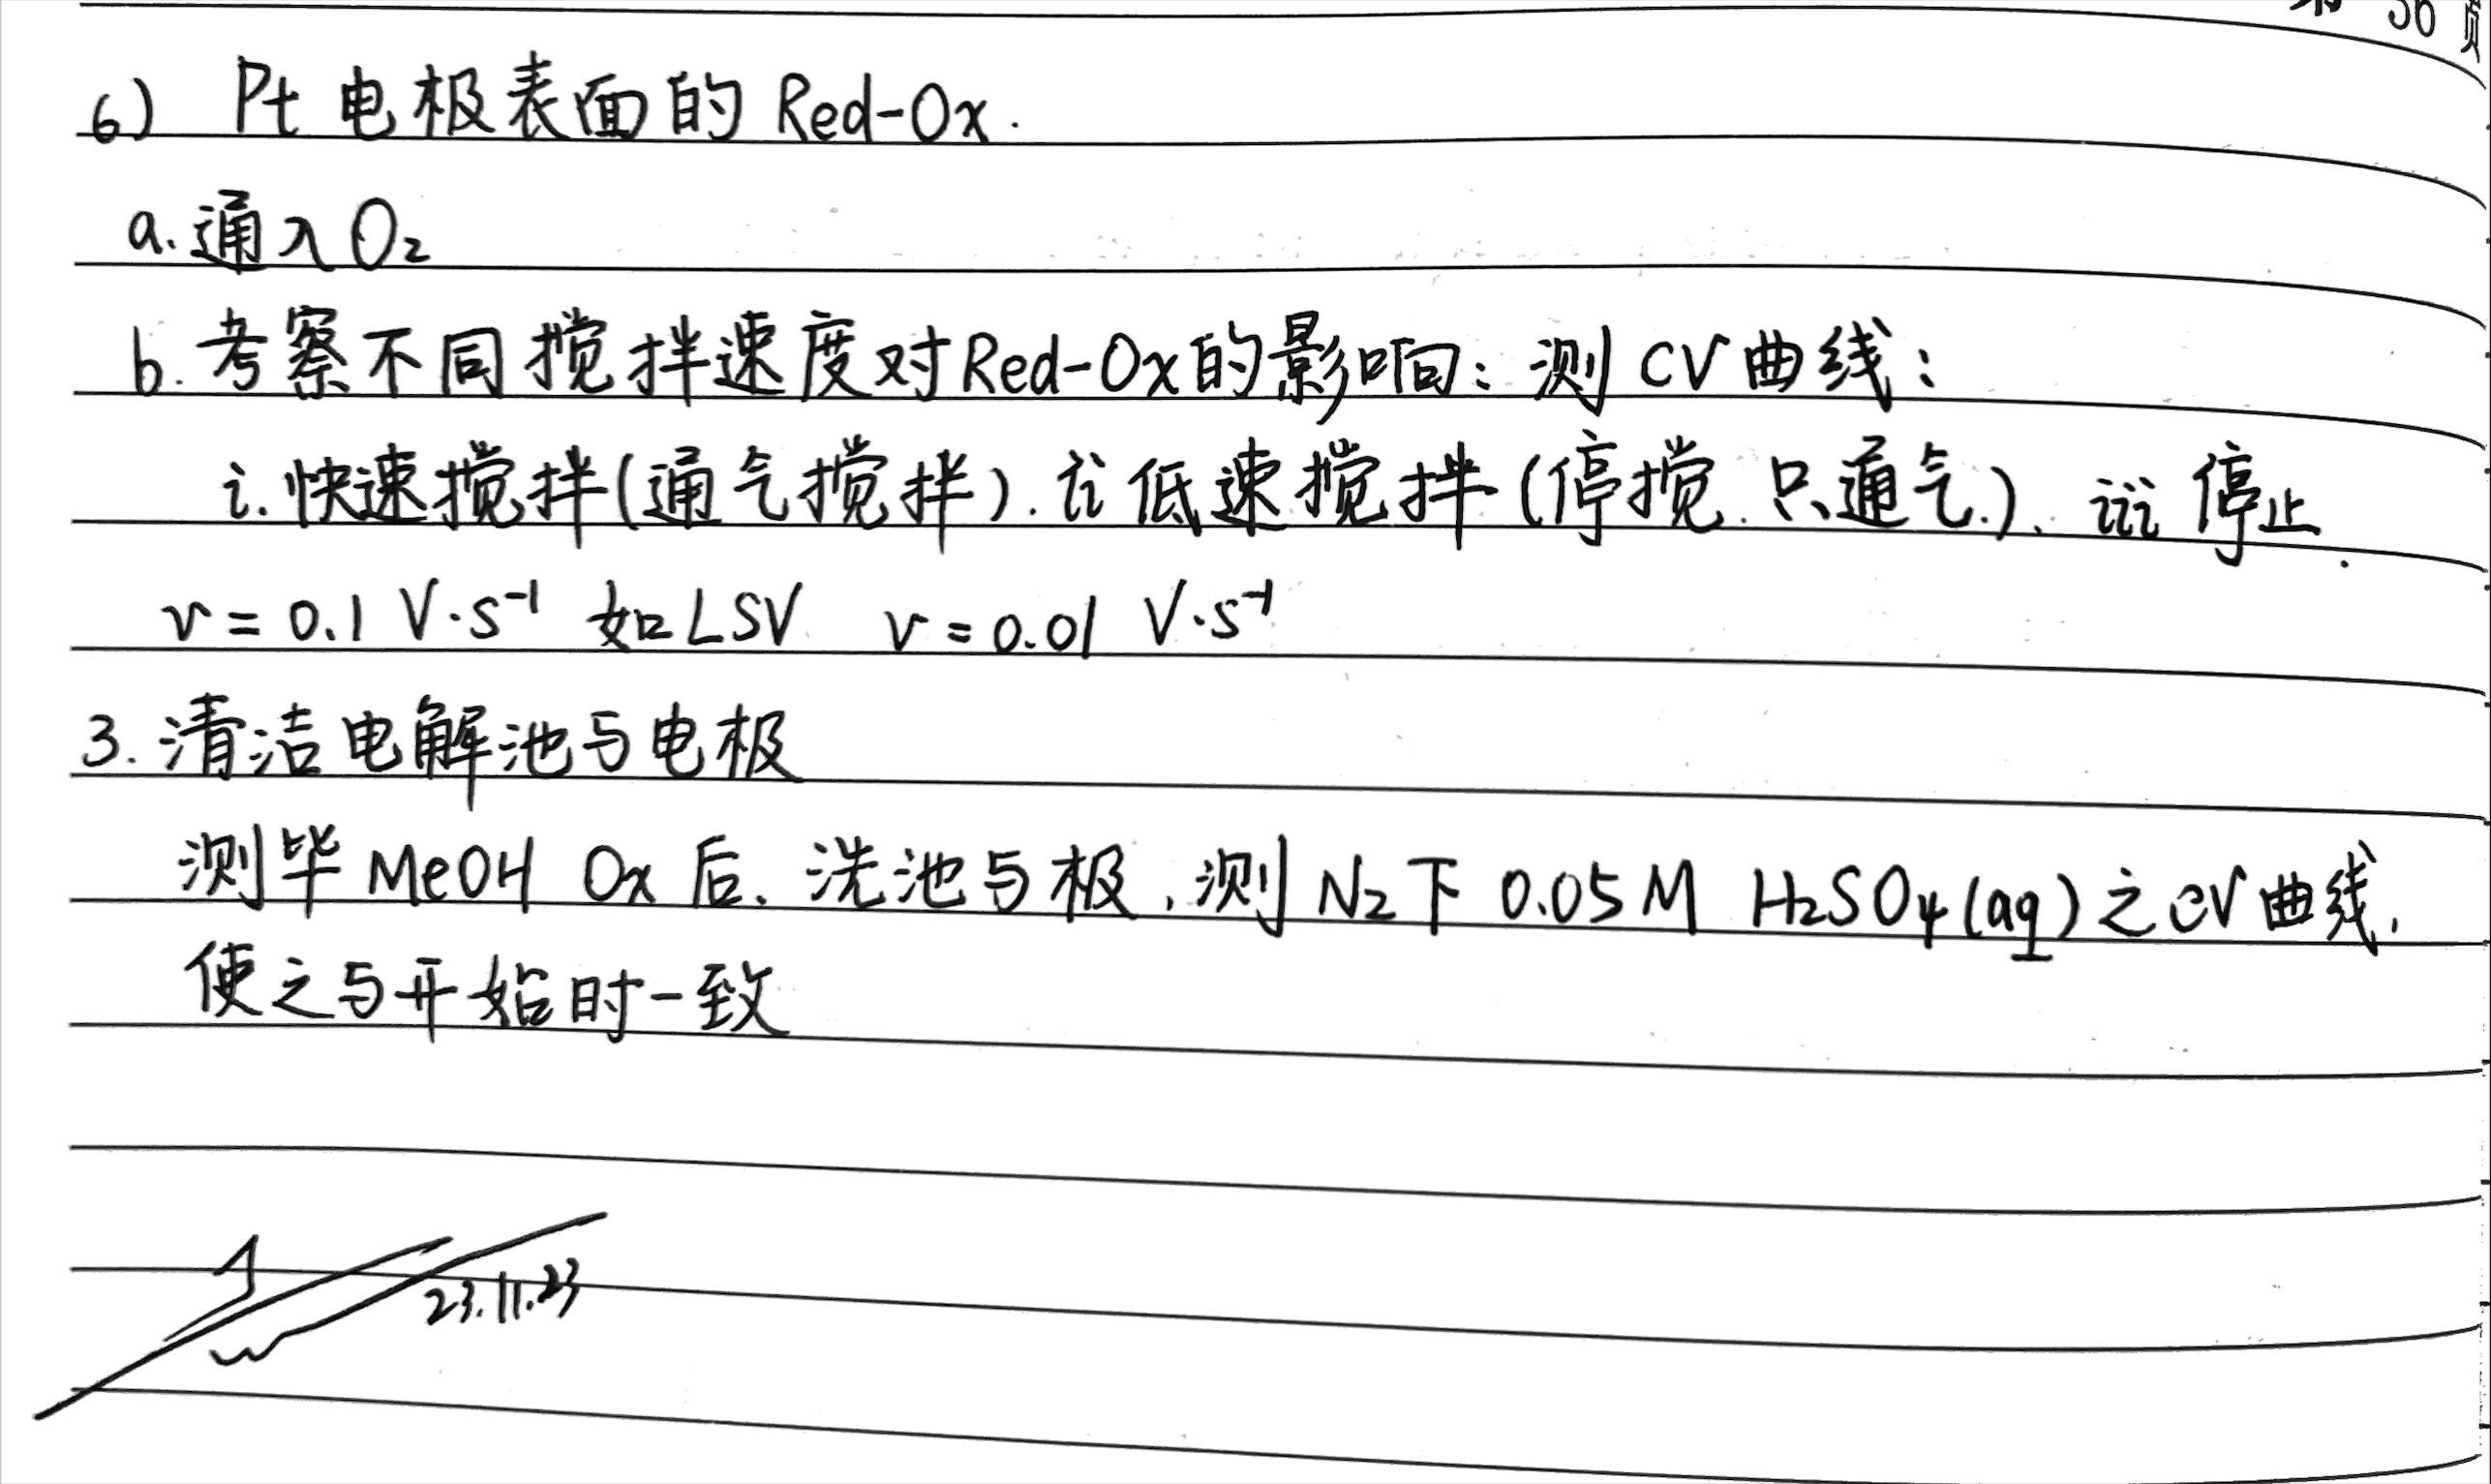 第 36 页
6) Pt 电极表面的 Red-Ox.
a. 通入 O₂
b. 考察不同搅拌速度对Red-Ox的影响: 测 CV 曲线:
i. 快速搅拌(通气搅拌). ii 低速搅拌 (停搅. 只通气.)、 iii 停止.
v = 0.1 V·s⁻¹ 如 LSV v = 0.01 V·s⁻¹
3. 清洁电解池与电极
测毕 MeOH Ox 后、洗池与极, 测 N₂ 下 0.05 M H₂SO₄ (aq) 之 CV 曲线,
使之与开始时一致
23.11.23